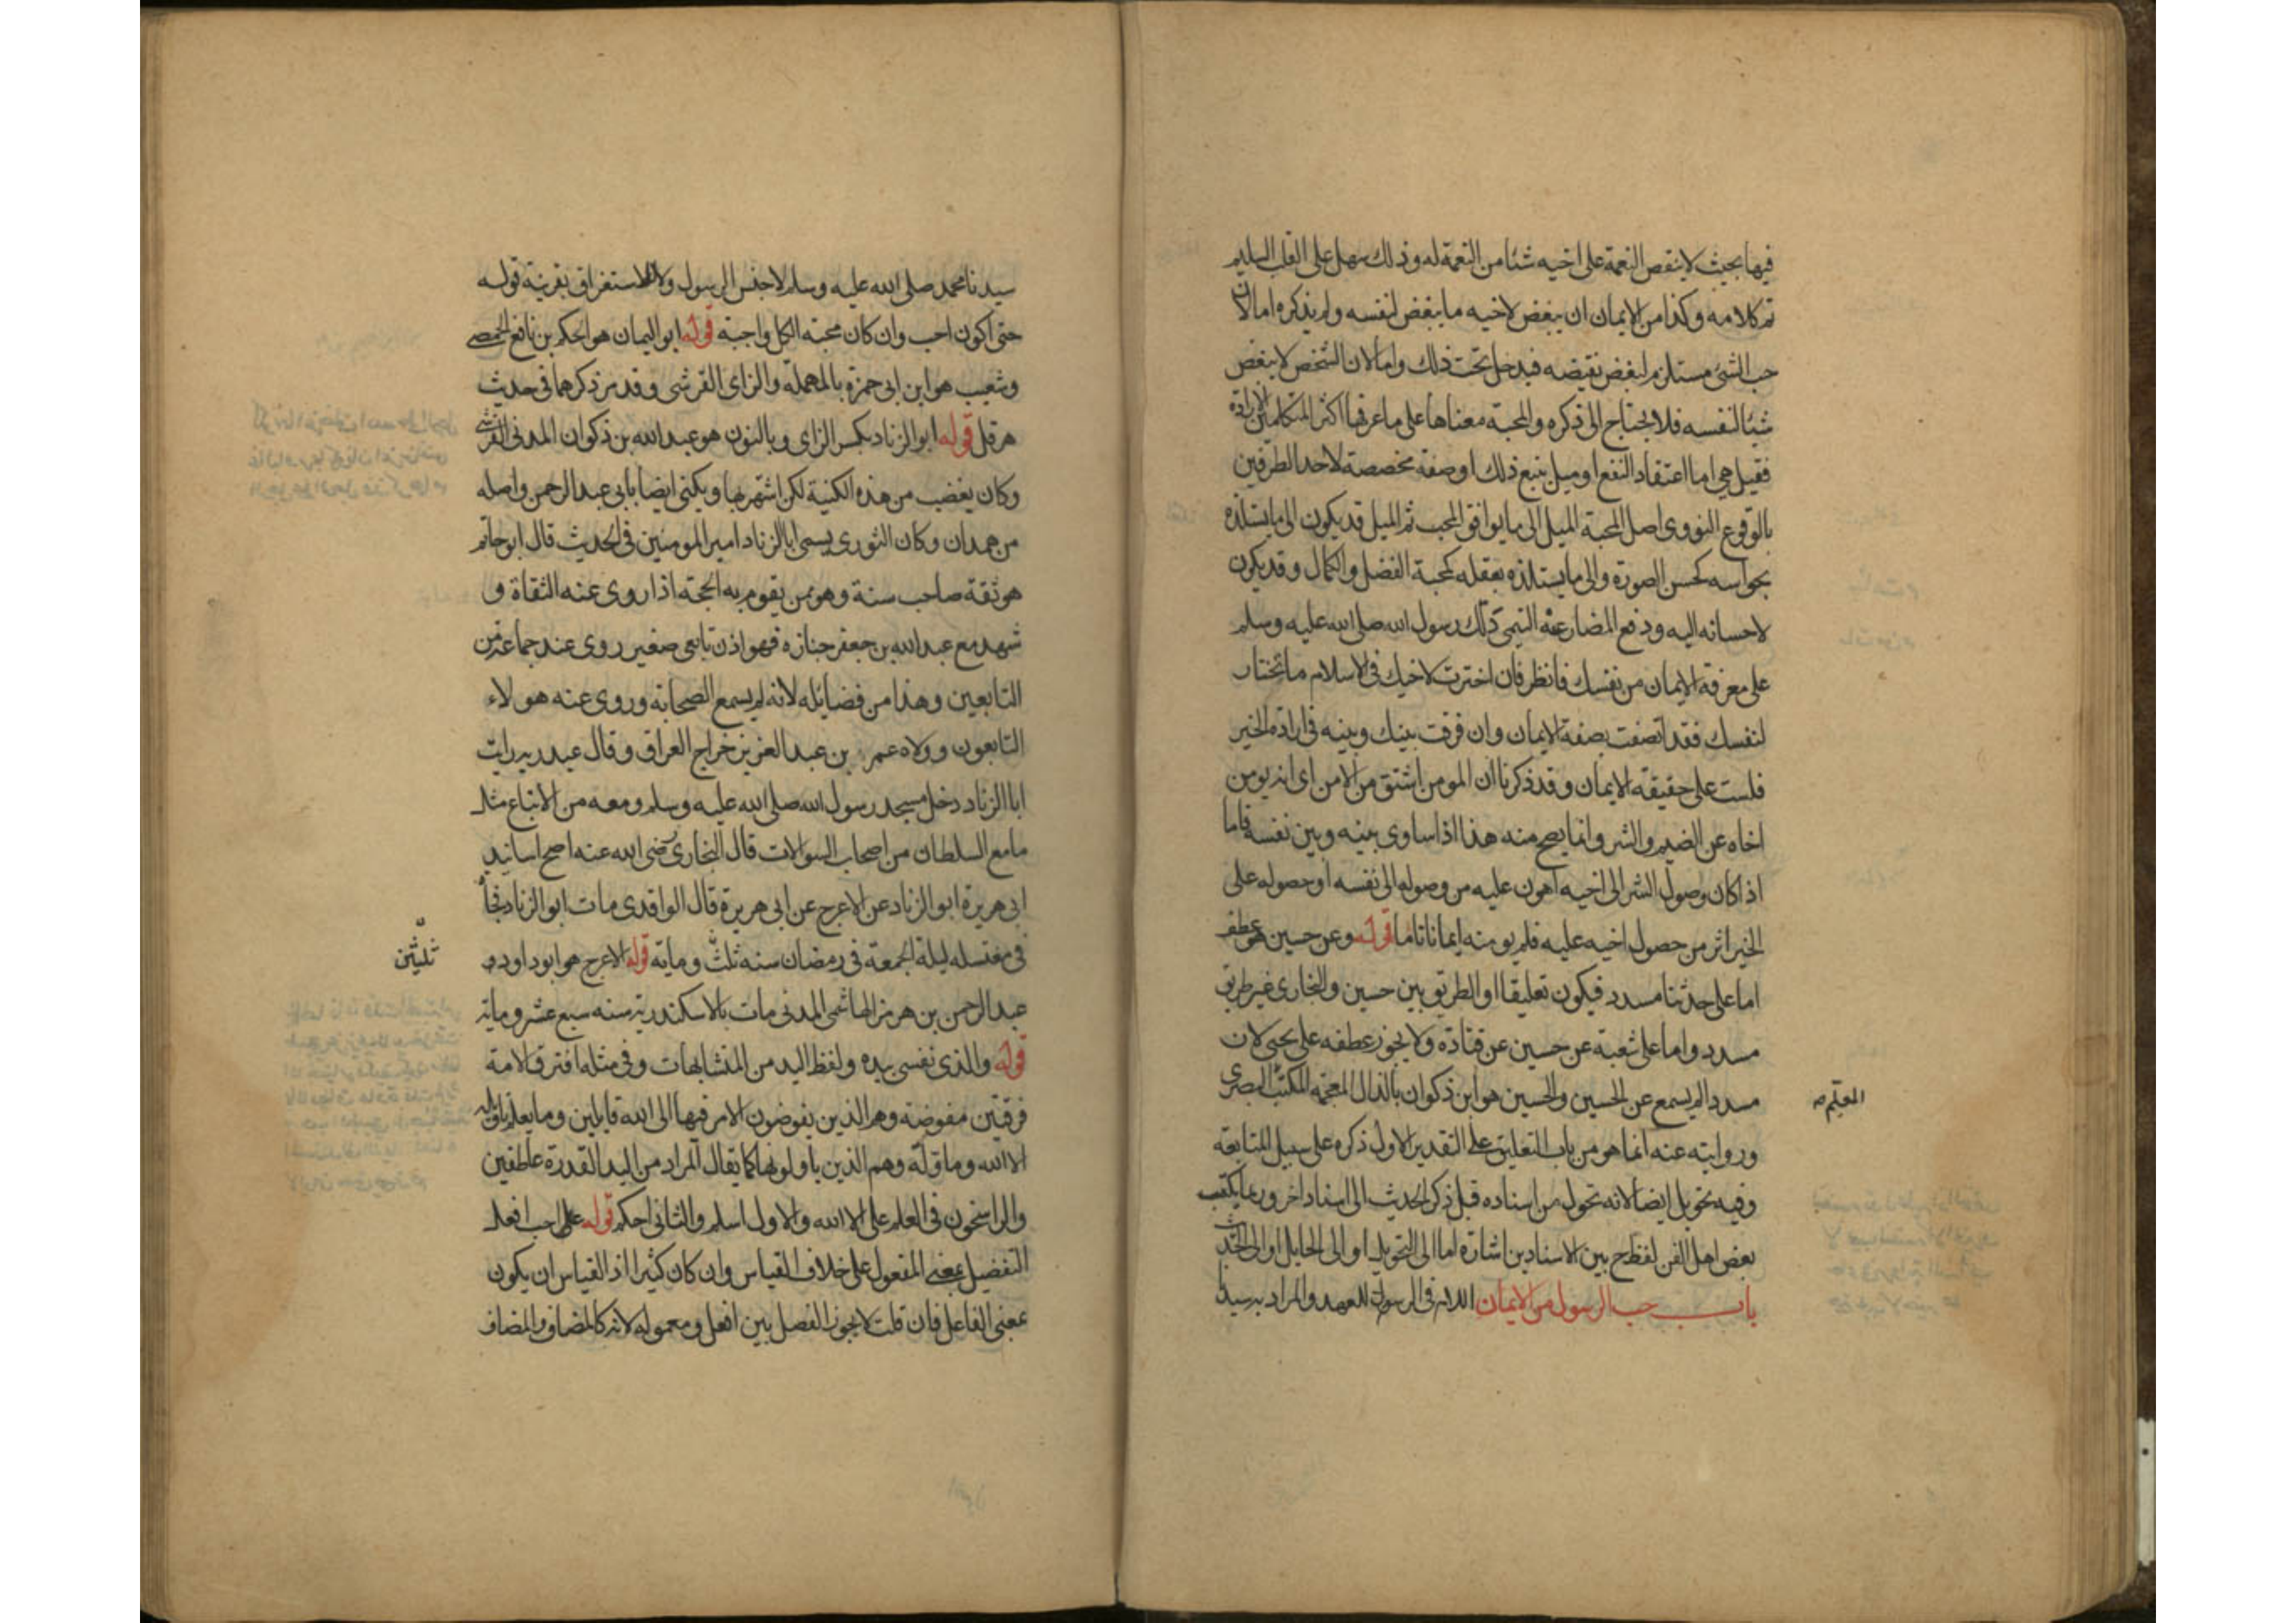 فيها بحيث لا ينقص النعمة على اخيه شئا من النعمة له وذلك سهل على القلب السليم
تم كلامه وكذا من الايمان ان يبغض لاخيه ما يبغض لنفسه ولم يذكره اما لان
حب الشئ مستلزم لبغض نقيضه فيدخل تحت ذلك واما لان الشخص لا يبغض
شئا لنفسه فلا يحتاج الى ذكره والمحبة معناها على ما عرفها اكثر المتكلمين الارادة
فقيل هي اما اعتقاد النفع او ميل يتبع ذلك او صفة مخصصة لاحد الطرفين
بالوقوع النووى اصل المحبة الميل الى ما يوافق المحب ثم الميل قد يكون الى ما يستلذه
بحواسه كحسن الصورة والى ما يستلذه بعقله كمحبة الفضل والكمال وقد يكون
لاحسانه اليه ودفع المضار عنه التيمى دلك رسول الله صلى الله عليه وسلم
على معرفة الايمان من نفسك فانظر فان اخترت لاخيك فى الاسلام ما تختار
لنفسك فقد اتصفت بصفة الايمان وان فرقت بينك وبينه فى ارادة الخير
فلست على حقيقة الايمان وقد ذكرنا ان المومن اشتق من الامن اى انه يومن
اخاه عن الضيم والشر وانما يصح منه هذا اذا ساوى بينه وبين نفسه فاما
اذا كان وصول الشر الى اخيه اهون عليه من وصوله الى نفسه او حصوله على
الخير اثر من حصول اخيه عليه فلم يومنه ايمانا تاما قوله وعن حسين هو عطف
اما على حدثنا مسدد فيكون تعليقا او الطريق بين حسين والبخارى غير طريق
مسدد واما على شعبة عن حسين عن قتادة ولا يجوز عطفه على يحيى لان
مسددا لم يسمع عن الحسين والحسين هو ابن ذكوان بالذال المعجمة المكتب البصرى
المعلم
وروايته عنه انما هو من باب التعليق على التقدير الاول ذكره على سبيل المتابعة
وفيه تحويل ايضا لانه تحول من اسناده قبل ذكر الحديث الى اسناد اخر وربما يكتب
بعض اهل الفن لفظ ح بين الاسنادين اشارة اما الى التحويل او الى الحايل او الى الحديث
باب حب الرسول من الايمان اللام فى الرسول للعهد والمراد به سيدنا
سيدنا محمد صلى الله عليه وسلم لا جنس الرسول ولا للاستغراق بقرينة قوله
حتى اكون احب وان كان محبة الكل واجبة قوله ابو اليمان هو الحكم بن نافع الحمصى
وشعيب هو ابن ابى حمزة بالمهملة والزاى القرشى وقد مر ذكرهما فى حديث
هرقل قوله ابو الزناد بكسر الزاى وبالنون هو عبد الله بن ذكوان المدنى القرشى
وكان يغضب من هذه الكنية لكن اشتهر بها ويكنى ايضا بابى عبد الرحمن واصله
من همدان وكان الثورى يسمى ابا الزناد امير المومنين فى الحديث قال ابو حاتم
هو ثقة صاحب سنة وهو ممن يقوم به الحجة اذا روى عنه الثقاة و
شهد مع عبد الله بن جعفر جنازة فهو اذن تابعى صغير روى عنه جماعة من
التابعين وهذا من فضايله لانه لم يسمع الصحابة وروى عنه هولاء
التابعون وولاه عمر بن عبد العزيز خراج العراق وقال عبد ربه رايت
ابا الزناد دخل مسجد رسول الله صلى الله عليه وسلم ومعه من الاتباع مثل
ما مع السلطان من اصحاب السوالات قال البخارى رضى الله عنه اصح اسانيد
ابى هريرة ابو الزناد عن الاعرج عن ابى هريرة قال الواقدى مات ابو الزناد فجأ
فى مغتسله ليلة الجمعة فى رمضان سنه ثلث وماية قوله الاعرج هو ابو داود
ثلثين
عبد الرحمن بن هرمز الهاشمى المدنى مات بالاسكندرية سنه سبع عشر وماية
قوله والذى نفسى بيده ولفظ اليد من المتشابهات وفى مثله افترق الامة
فرقتين مفوضة وهم الذين يفوضون الامر فيها الى الله قايلين وما يعلم تاويله
الا الله وماولة وهم الذين ياولونها كما يقال المراد من اليد القدرة عاطفين
والراسخون فى العلم على الا الله والاول اسلم والثانى احكم قوله على احب افعل
التفضيل بمعنى المفعول على خلاف القياس وان كان كثيرا اذ القياس ان يكون
بمعنى الفاعل فان قلت لا يجوز الفصل بين افعل ومعموله لانه كالمضاف والمضاف